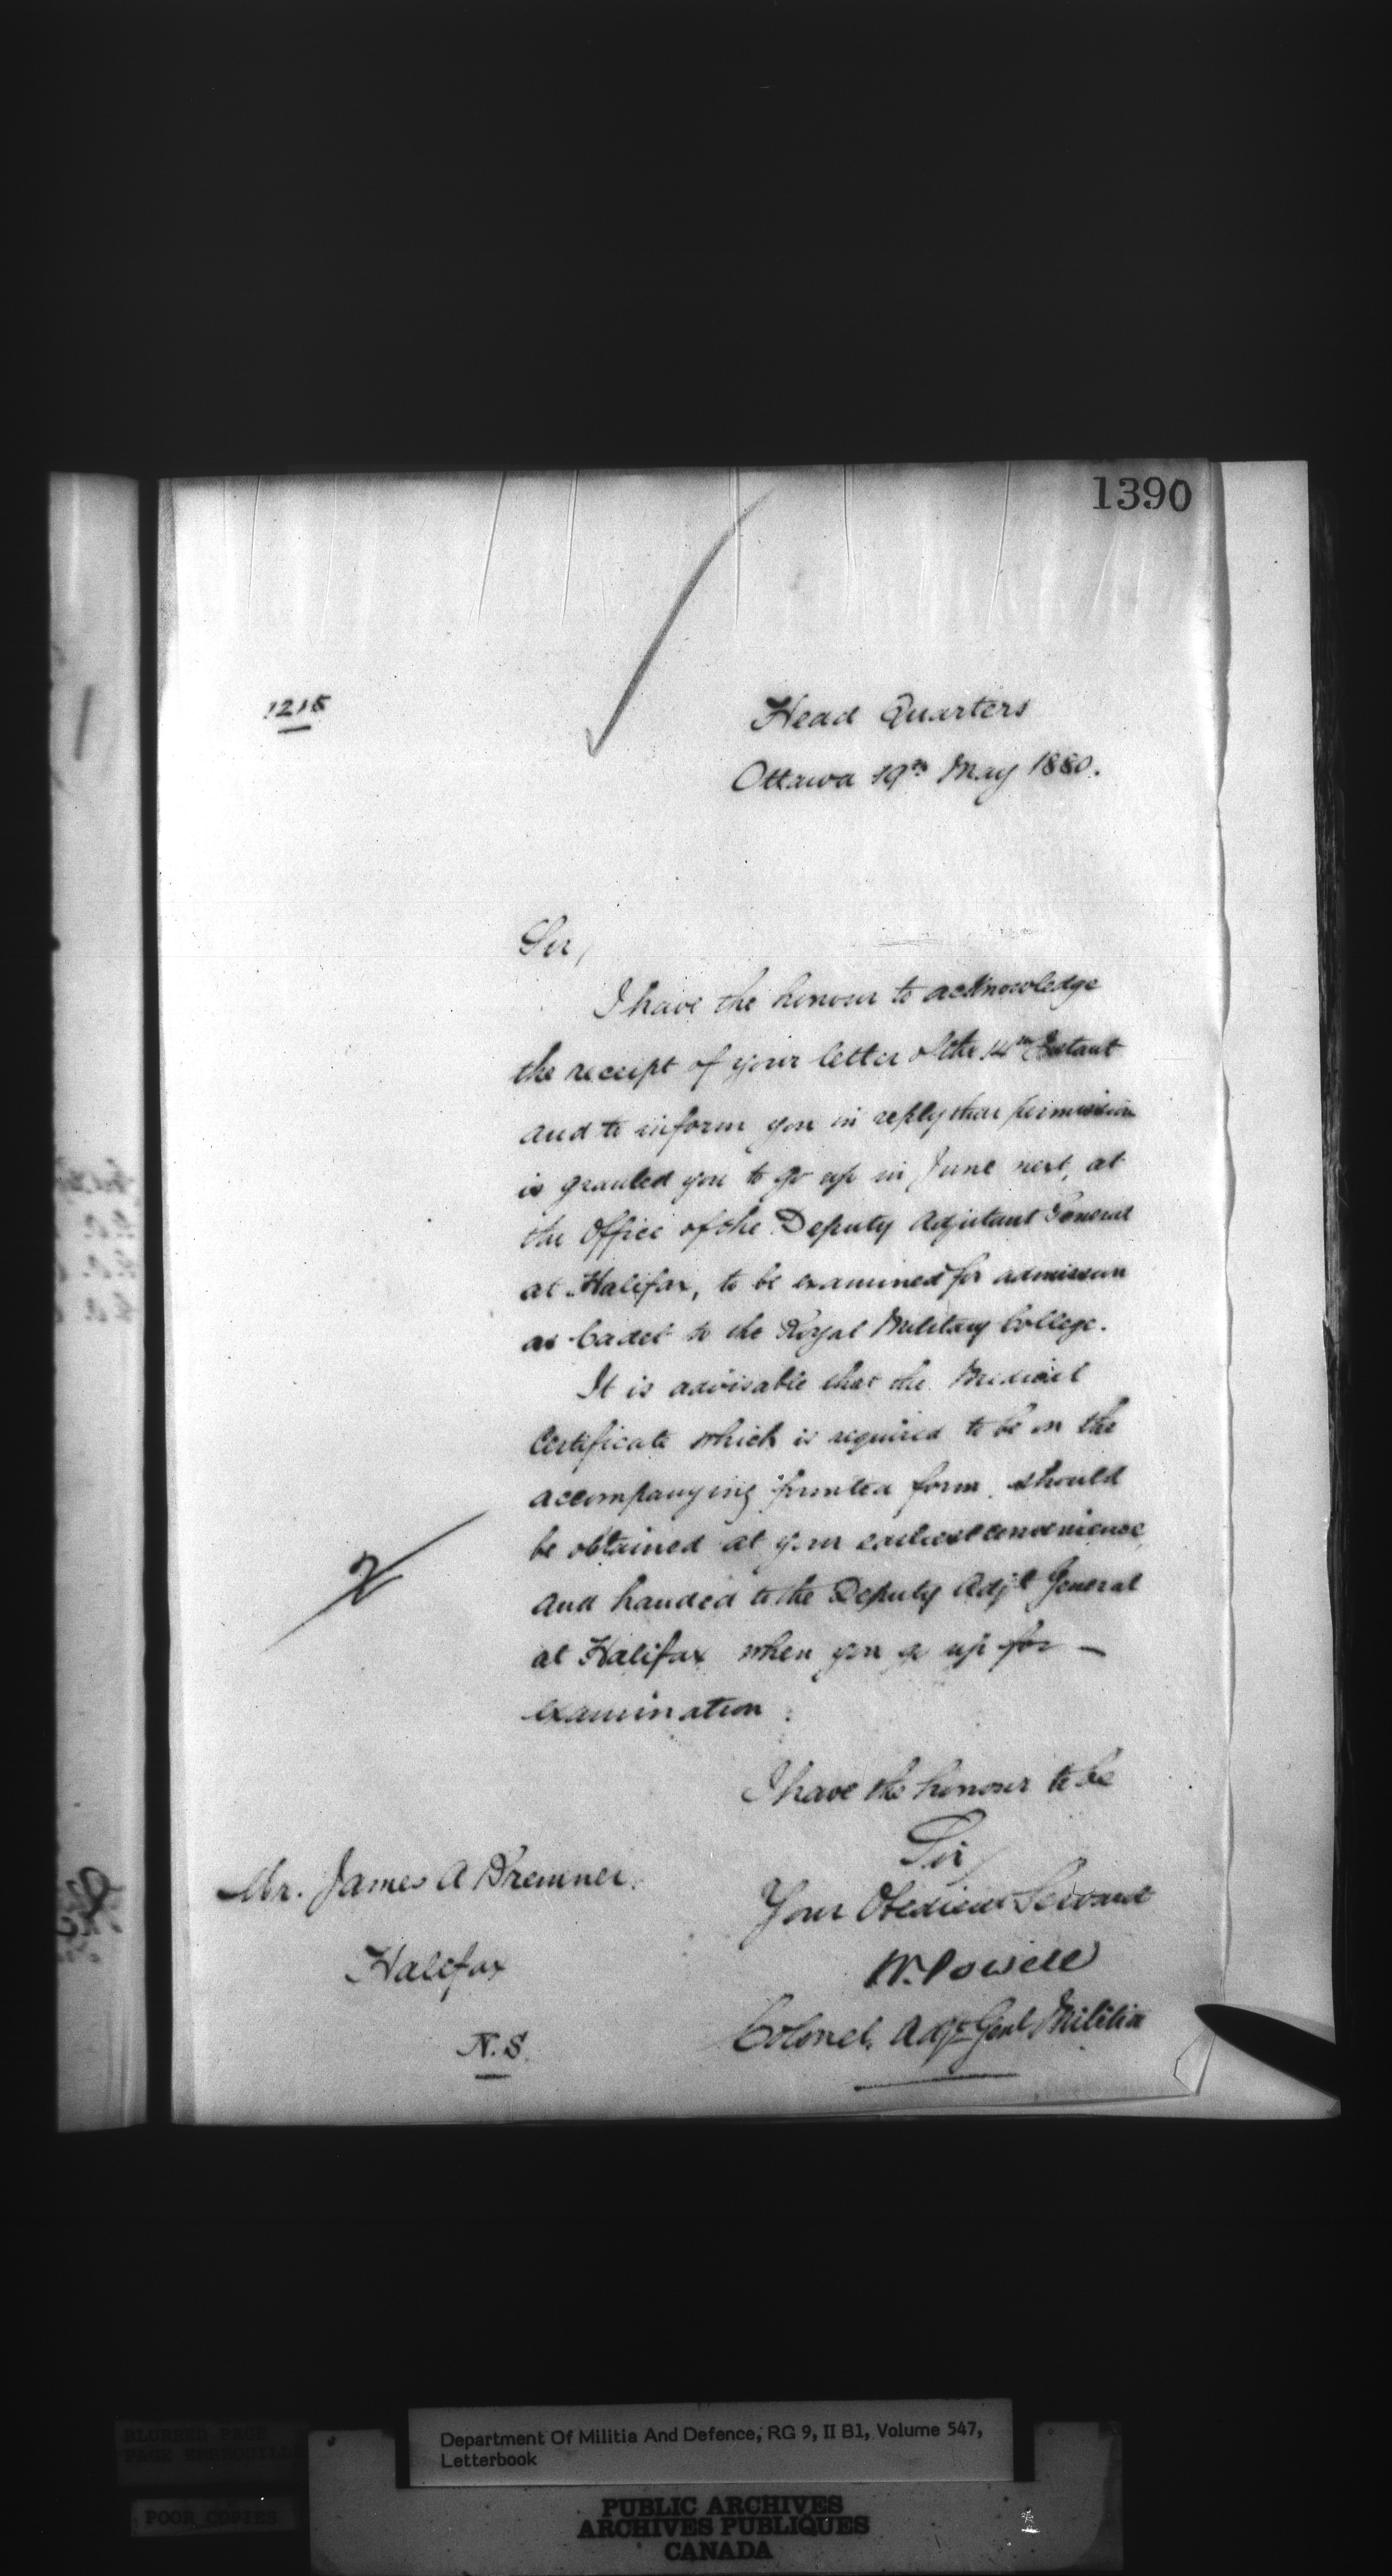 1390
1215
Head Quarters
Ottawa 19th May 1880.
Sir,
I have the honour to acknowledge
the receipt of your letter of the 14th Instant
and to inform you in reply that permission
is granted you to go up in June next, at
the Office of the Deputy Adjutant General
at Halifax, to be examined for admission
as Cadet to the Royal Military College.
It is advisable that the Medical
Certificate which is required to be on the
accompanying printed form should
be obtained at your earliest convenience,
and handed to the Deputy Adjt General
at Halifax when you go up for —
examination.
I have the honour to be
Sir,
Your Obedient Servant
W. Powell
Colonel. Adjt Genl Militia
Mr. James A Bremner.
Halifax
N.S.
BLURRED PAGE
POOR COPIES
Department Of Militia And Defence, RG 9, II B1, Volume 547,
Letterbook
PUBLIC ARCHIVES
ARCHIVES PUBLIQUES
CANADA